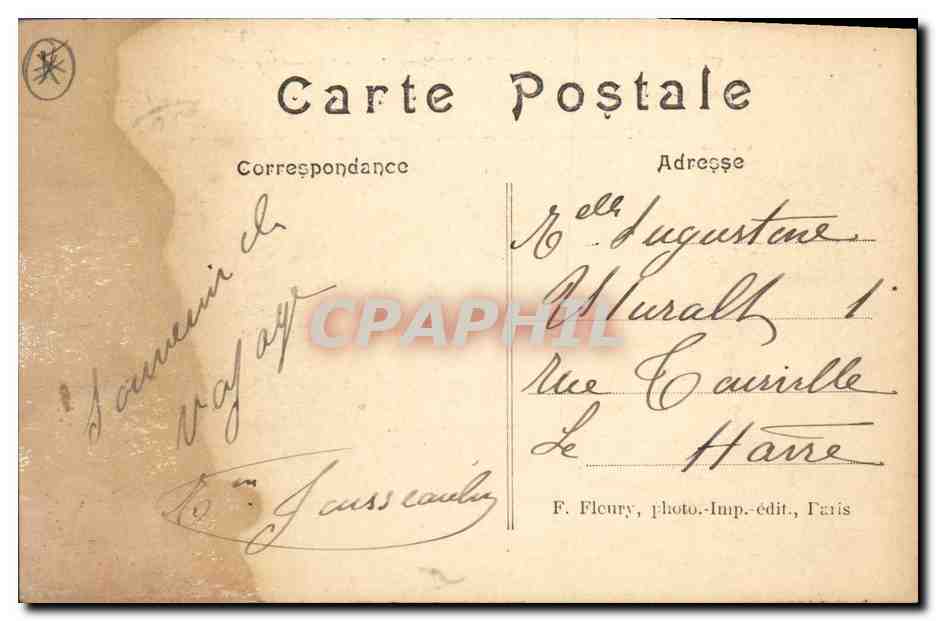 Carte Postale
Correspondance
Adresse
Souvenir de
voyage
Melle Augustine
1
rue Tourville
Le Havre
F. Fleury, photo.-Imp.-édit., Paris
CPAPHIL